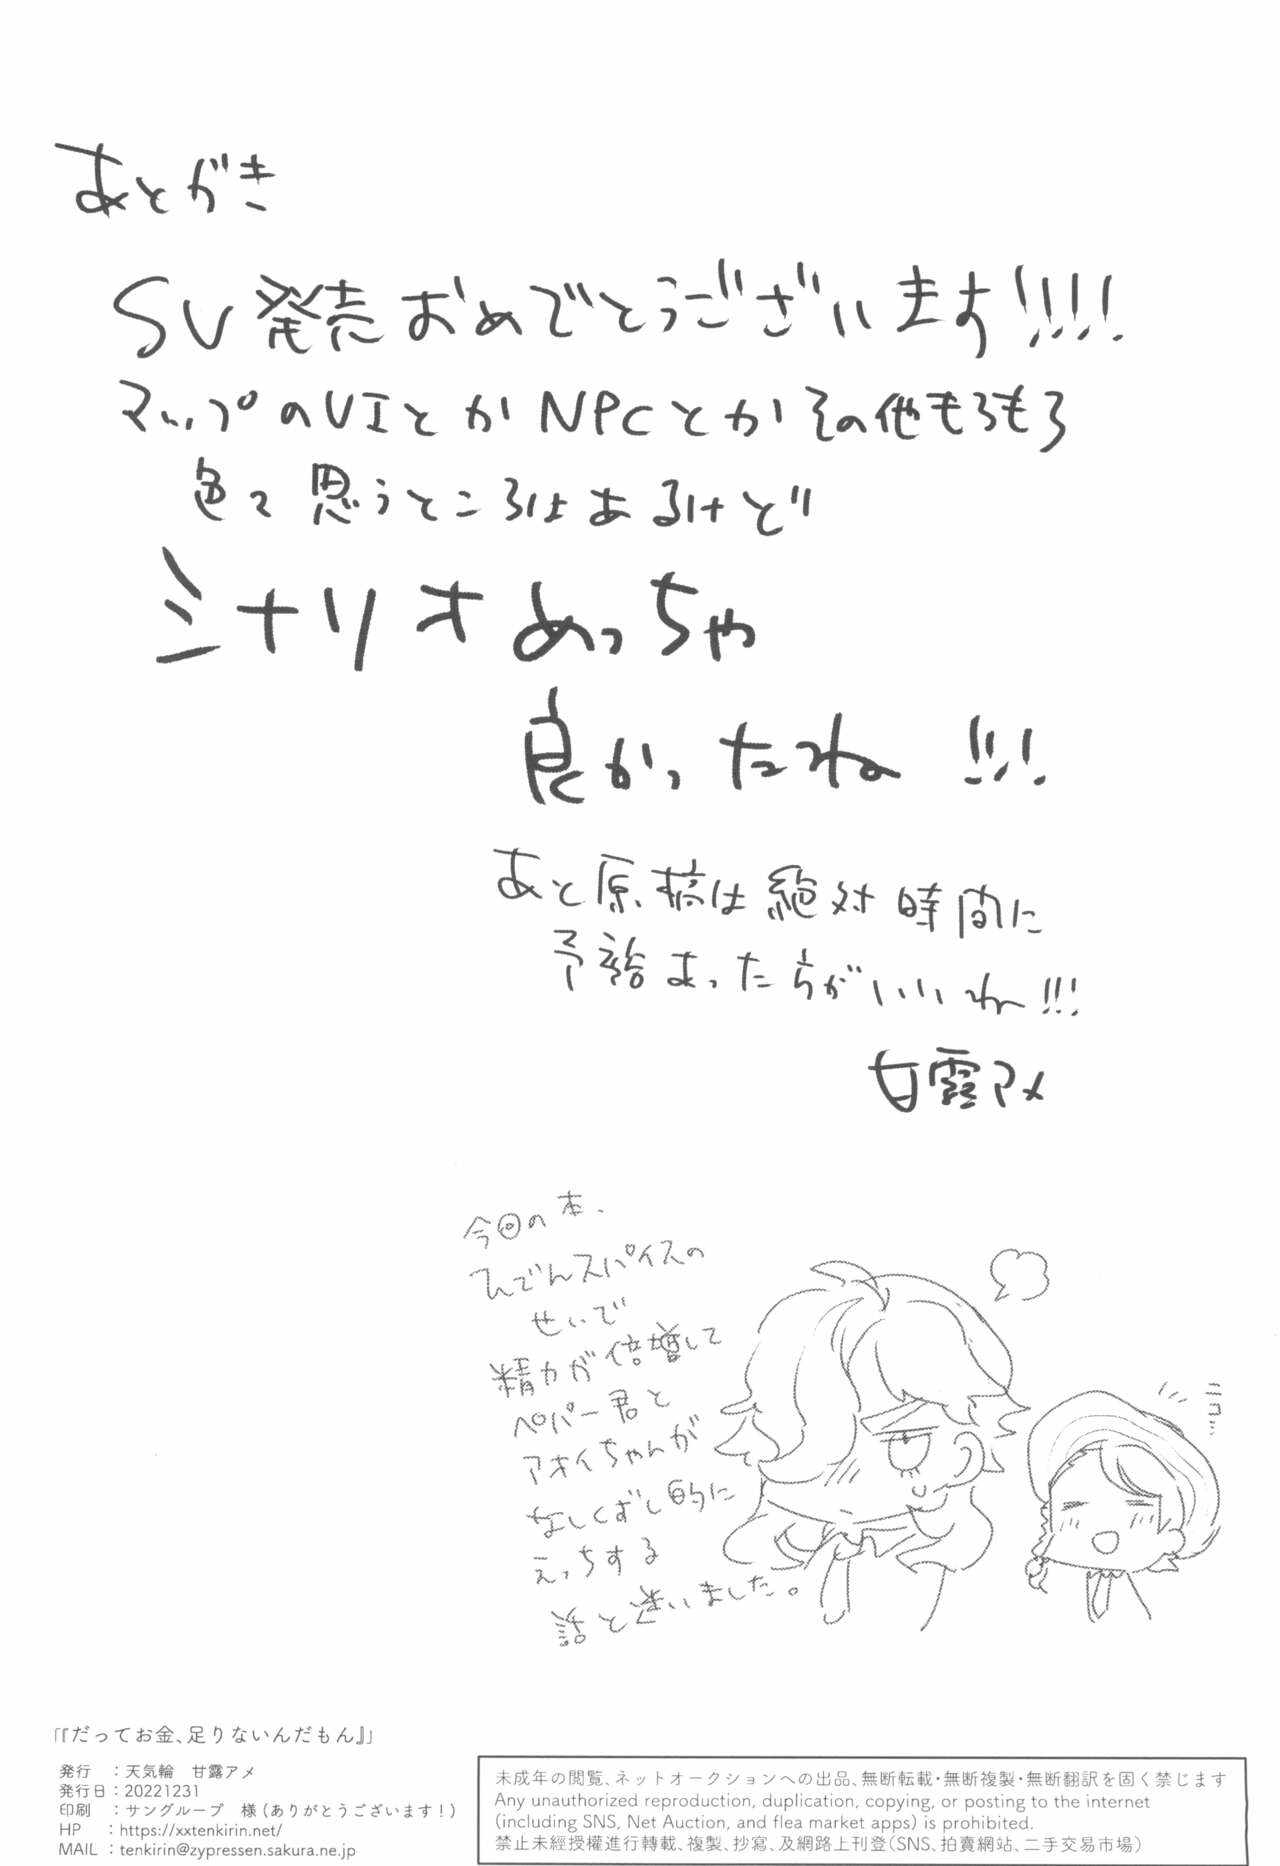 あとがき
SV発売おめでとうございます!!!!
マップのUIとかNPCとかその他もろもろ
色々思うところはあるけど
シナリオめっちゃ
良かったね!!!
あと原稿は絶対時間に
予裕あった方がいいね!!!
甘露アメ
今回の本、
ひでんスパイスの
せいで
精力が倍増して
ペパー君と
アオイちゃんが
なしくずし的に
えっちする
話と迷いました。
ニコ…
「『だってお金、足りないんだもん』」
発行　：天気輪　甘露アメ
発行日：20221231
印刷　：サングループ　様（ありがとうございます！）
HP　：https://xxtenkirin.net/
MAIL：tenkirin@zypressen.sakura.ne.jp
未成年の閲覧、ネットオークションへの出品、無断転載・無断複製・無断翻訳を固く禁じます
Any unauthorized reproduction, duplication, copying, or posting to the internet
(including SNS, Net Auction, and flea market apps) is prohibited.
禁止未經授權進行轉載、複製、抄寫、及網路上刊登（SNS、拍賣網站、二手交易市場）